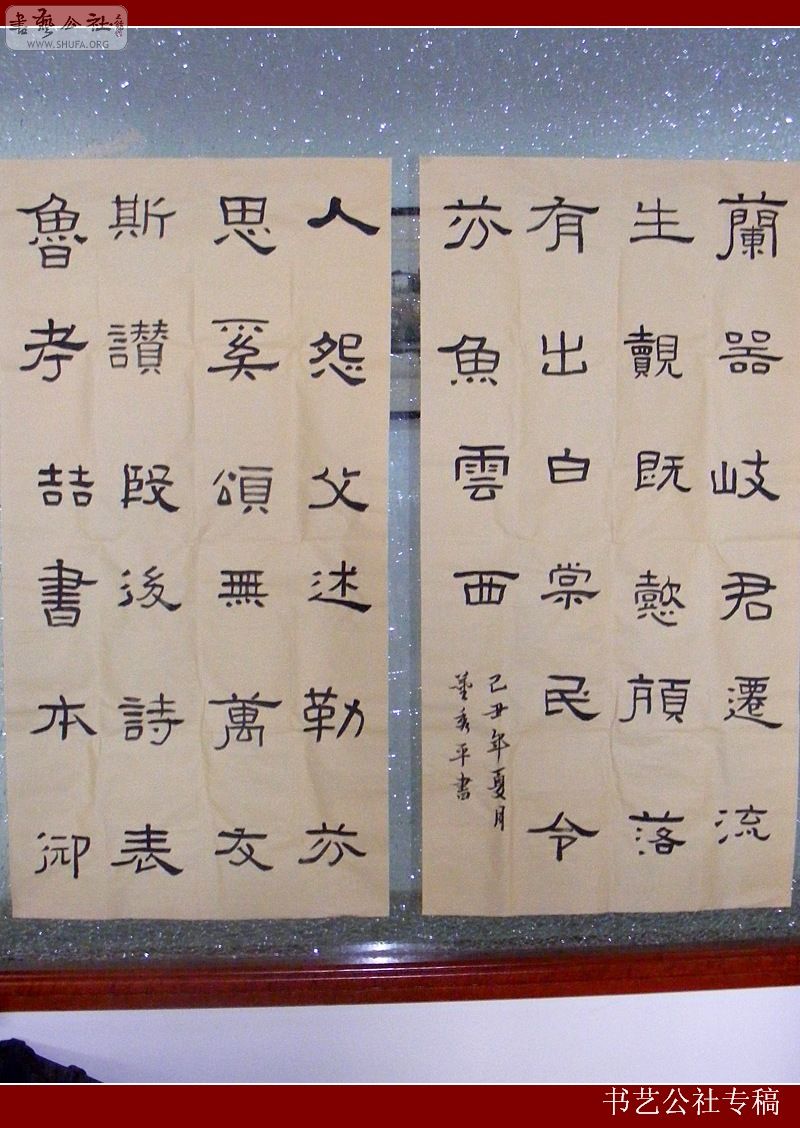 書藝公社
WWW.SHUFA.ORG
蘭器岐君遷流
生覿既懿落
有出白棠民令
亦魚雲西
己丑年夏月
董秀平書
人怨父述勒亦
思奚頌無萬友
斯讃段後詩表
魯孝喆書本御
书艺公社专稿